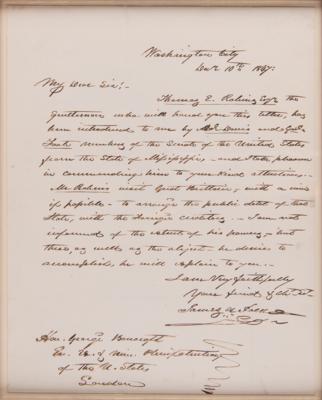 Washington City
Decr 10th 1847.
My Dear Sir:-
Thomas E. Robins Esqr the
gentleman who will hand you this letter, has
been introduced to me by Mr Davis and Genl
Foote members of the Senate of the United States
from the State of Mississippi - and I take pleasure
in commending him to your kind attentions.-
Mr Robins visits Great Brittain, with a view
if possible - to arrange the public debt of that
State, with the Foreign creditors.- I am not
informed of the extent of his powers,- but
these as well as the object he desires to
accomplish he will explain to you.-
I am Very faithfully
Your friend &
James K. Polk
Hon. George Bancroft
En. Ex. & Min. Plenipotentiary
of the U. States
London